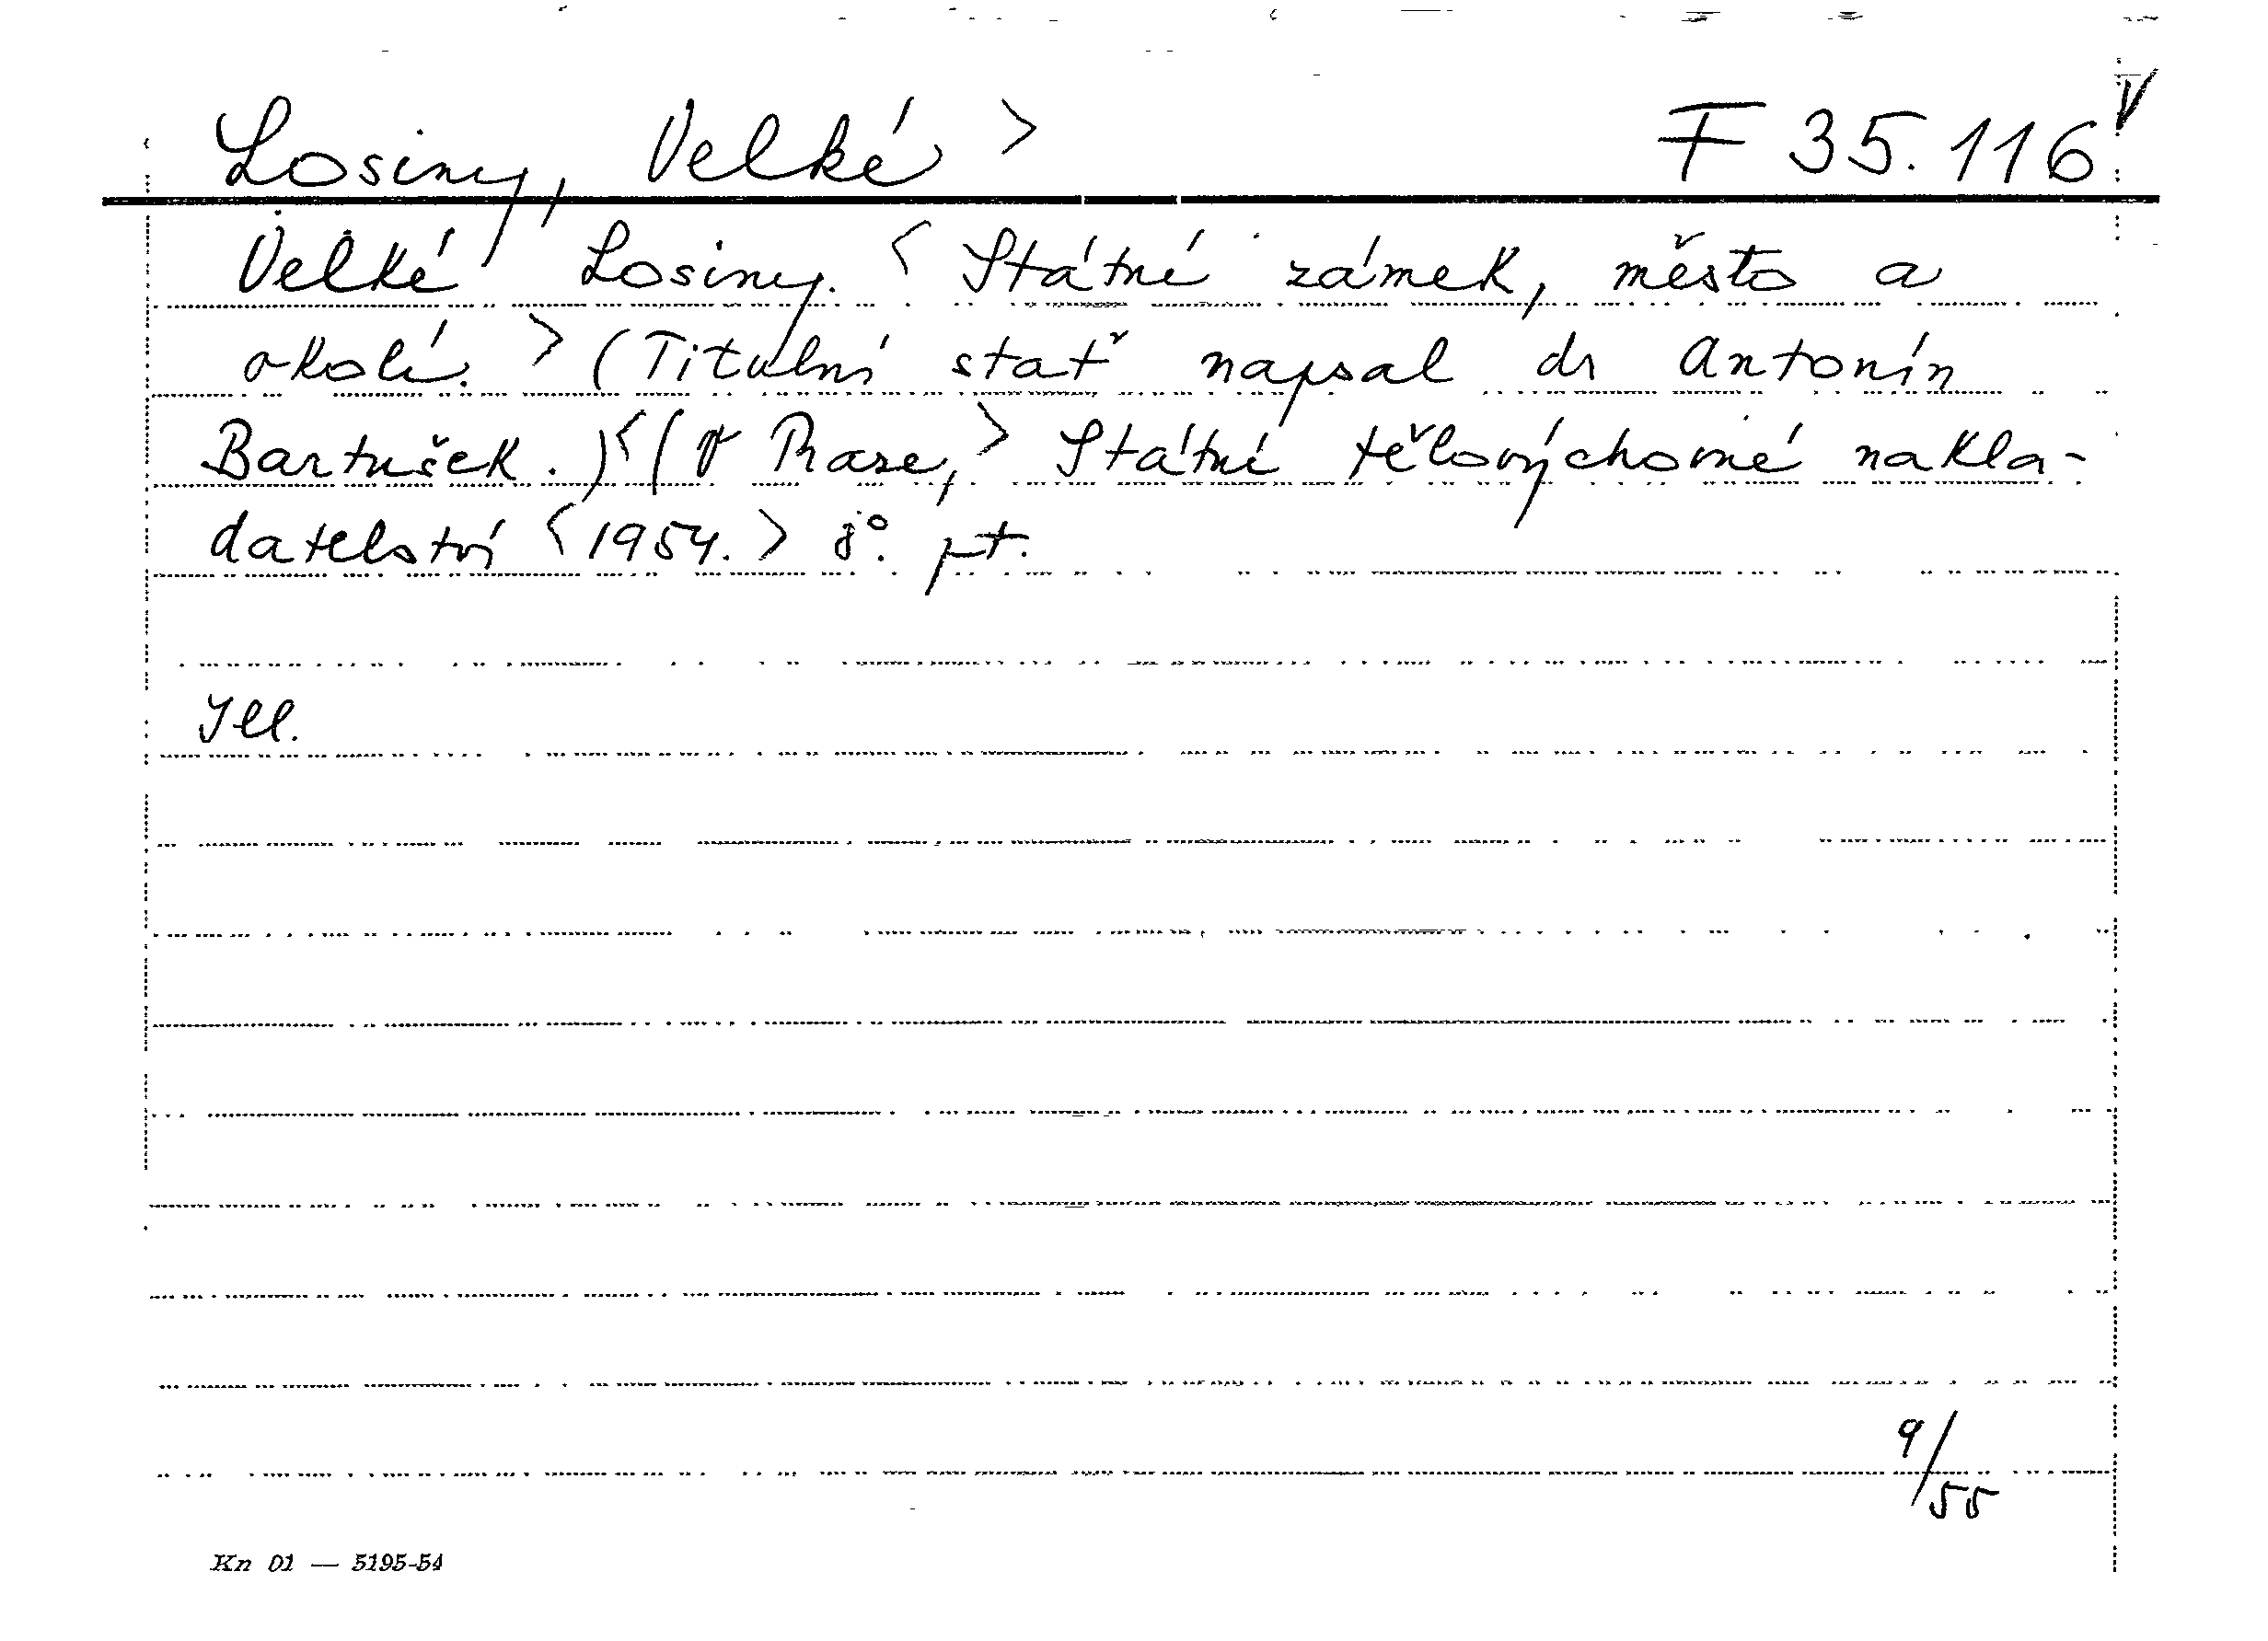 Losiny, Velké > F 35.116 V
Velké Losiny. < Státní zámek, město a
okolí. > (Titulní stať napsal dr Antonín
Bartušek.) < (V Praze, > Státní tělovýchovné nakla-
datelství < 1954. > 8°. pt.
Ill.
9/55
Kn 01 — 5195-54